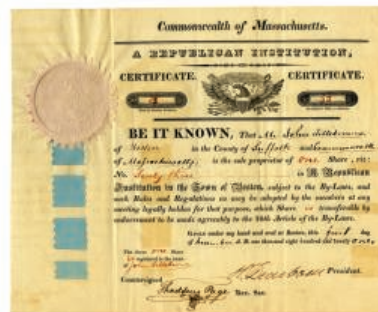 Commonwealth of Massachusetts.
A REPUBLICAN INSTITUTION,
CERTIFICATE. CERTIFICATE.
BE IT KNOWN, That Mr. John
of Boston in the County of Suffolk and Commonwealth
of Massachusetts, is the sole proprietor of One Share, viz:
No. in A Republican
Institution in the Town of Boston, subject to the By-Laws, and
such Rules and Regulations as may be adopted by the members at any
meeting legally holden for that purpose, which Share is transferable by
endorsement to be made agreeably to the Article of the By-Laws.
Given under my hand and seal at Boston, this first day
of A. D. one thousand eight hundred and
The above One Share
is registered in the name
of John
President.
Countersigned
Thaddeus Page Rec. Sec.